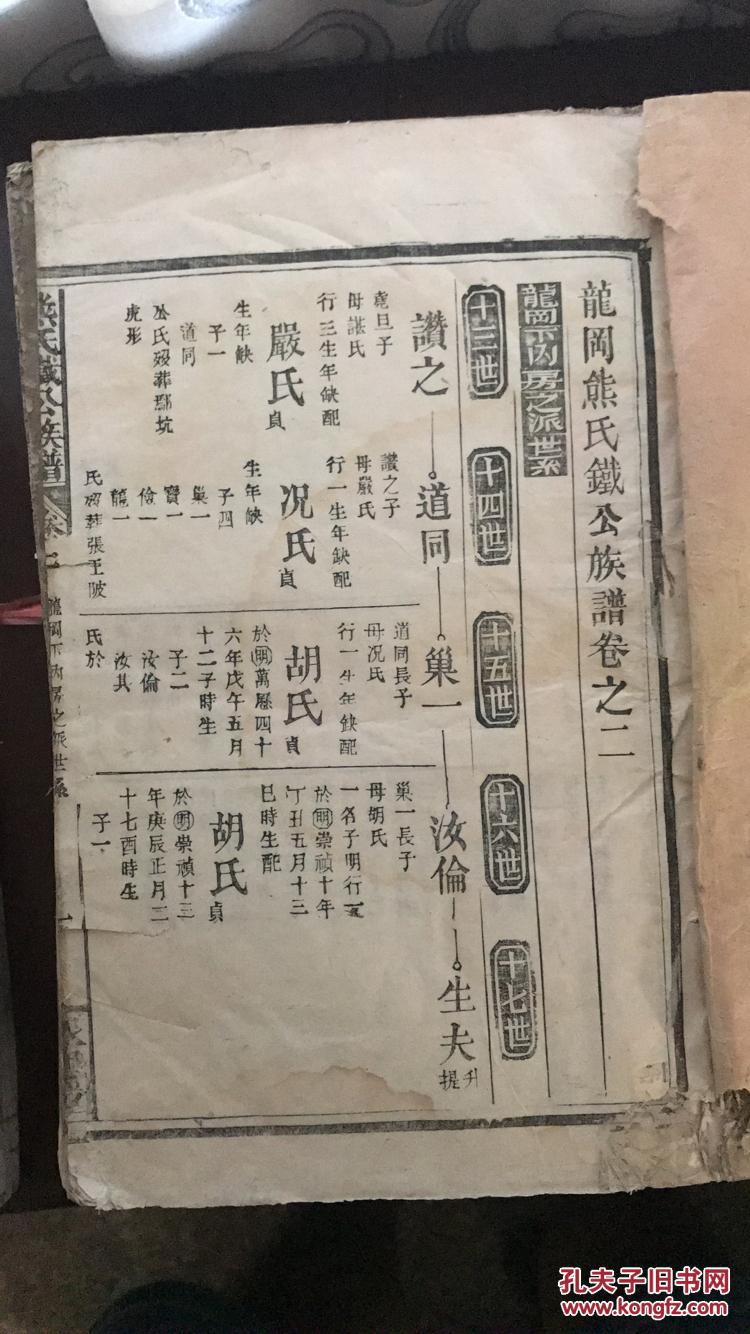 龍岡熊氏鐵公族譜卷之二
龍岡下內房之派世系
十三世
十四世
十五世
十六世
十七世
讚之
道同
巢一
汝倫
生夫
升提
堯旦子
母諶氏
行三生年缺配
嚴氏貞
生年缺
子一
道同
公氏歿葬鄢坑
虎形
讚之子
母嚴氏
行一生年缺配
况氏貞
生年缺
子四
巢一
寶一
儉一
龍一
氏歿葬張王陂
道同長子
母况氏
行一生年缺配
胡氏貞
於明萬曆四十
六年戊午五月
十二子時生
子二
汝倫
汝其
氏於
巢一長子
母胡氏
一名子明行
於明崇禎十年
丁丑五月十三
巳時生配
胡氏貞
於明崇禎十三
年庚辰正月二
十七酉時生
子一
熊氏鐵公族譜
卷二
龍岡下內房之派世系
一
孔夫子旧书网
kongfz.com